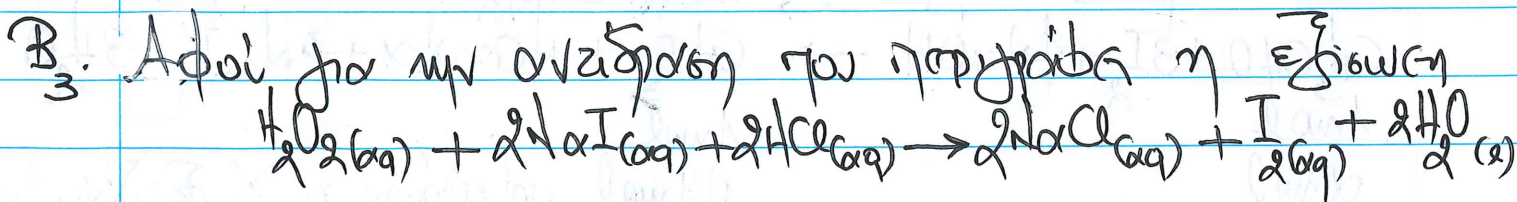 Β3. Αφού για την αντίδραση που περιγράφει η εξίσωση
H2O2(aq) + 2NaI(aq) + 2HCl(aq) → 2NaCl(aq) + I2(aq) + 2H2O(l)